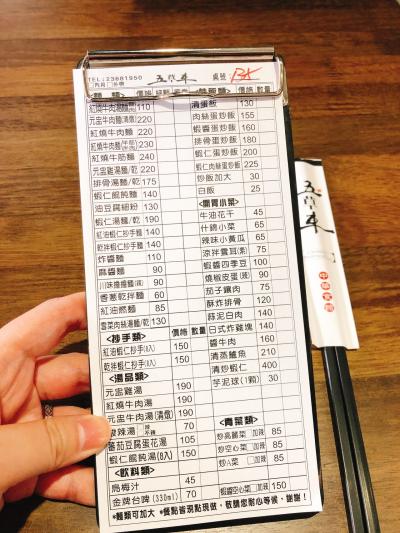 TEL:23681950
五草車
桌號:
麵類 價格
紅燒牛肉湯麵 110
元盅牛肉麵(清燉) 220
紅燒牛肉麵 220
紅燒牛肉麵
紅燒牛筋麵 240
元盅雞湯麵/乾 220
排骨湯麵/乾 175
蝦仁餛飩麵 140
油豆腐細粉 130
蝦仁湯麵/乾 190
紅油蝦仁抄手麵 140
乾拌蝦仁抄手麵 140
炸醬麵 110
麻醬麵 90
川味擔擔麵(辣) 90
香蔥乾拌麵 60
紅油燃麵 85
雪菜肉絲湯麵/乾 130
<抄手類> 價格 數量
紅油蝦仁抄手(8入) 150
乾拌蝦仁抄手(8入) 150
<湯品類>
元盅雞湯 190
紅燒牛肉湯 190
元盅牛肉湯(清燉) 190
酸辣湯 70
蕃茄豆腐蛋花湯 105
蝦仁餛飩湯(8入) 150
<飲料類>
烏梅汁 45
金牌台啤(330ml) 70
價格 數量
清蛋飯 130
肉絲蛋炒飯 155
蝦醬蛋炒飯 160
排骨蛋炒飯 180
蝦仁蛋炒飯 200
蝦仁肉絲蛋炒飯 225
炒飯加大 30
白飯 25
<開胃小菜>
牛油花干 45
什錦小菜 65
辣味小黃瓜 65
涼拌雲耳(素) 75
蝦醬四季豆 100
燒椒皮蛋(辣) 90
茄子鑲肉 75
酥炸排骨 120
蒜泥白肉 140
日式炸雞塊 140
醬牛肉 160
清蒸鱸魚 210
清炒蝦仁 400
芋泥球(1顆) 30
<青菜類>
炒高麗菜 □加辣 85
炒空心菜 □加辣 85
炒A菜 □加辣 85
蝦醬空心菜 □加辣 150
*麵類可加大 *餐點皆現點現做，敬請您耐心等候，謝謝!
五草車
中華食館